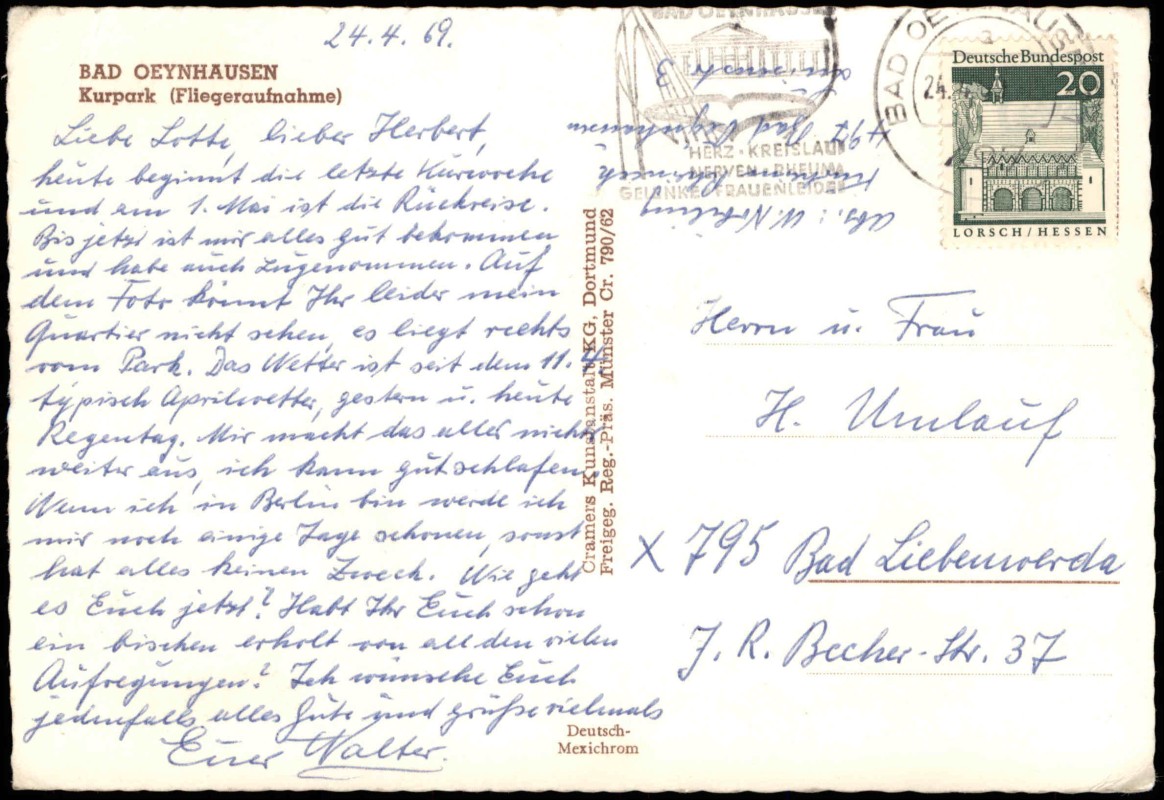 24.4.69.
BAD OEYNHAUSEN
Kurpark (Fliegeraufnahme)
Liebe Lotte, lieber Herbert,
heute beginnt die letzte Kurwoche
und am 1. Mai ist die Rückreise.
Bis jetzt ist mir alles gut bekommen
und habe auch zugenommen. Auf
dem Foto könnt Ihr leider mein
Quartier nicht sehen, es liegt rechts
vom Park. Das Wetter ist seit dem 11.4.
typisch Aprilwetter, gestern u. heute
Regentag. Mir macht das alles nichts
weiter aus, ich kann gut schlafen.
Wenn ich in Berlin bin werde ich
mir noch einige Tage schonen, sonst
hat alles keinen Zweck. Wie geht
es Euch jetzt? Habt Ihr Euch schon
ein bischen erholt von all den vielen
Aufregungen? Ich wünsche Euch
jedenfalls alles Gute und grüße vielmals
Euer Walter.
Cramers Kunstanstalt KG, Dortmund
Freigeg. Reg.-Präs. Münster Cr. 790/62
Deutsch-
Mexichrom
Abs.: W.
497 Bad Oeynhausen
3
BAD OEYNHAUSEN
HERZ · KREISLAUF
NERVEN · RHEUMA
GELENKE · FRAUENLEIDEN
BAD OEYNHAUSEN
a
24.4.6
Deutsche Bundespost
20
LORSCH / HESSEN
Herrn u. Frau
H. Umlauf
X 795 Bad Liebenwerda
J. R. Becher-Str. 37